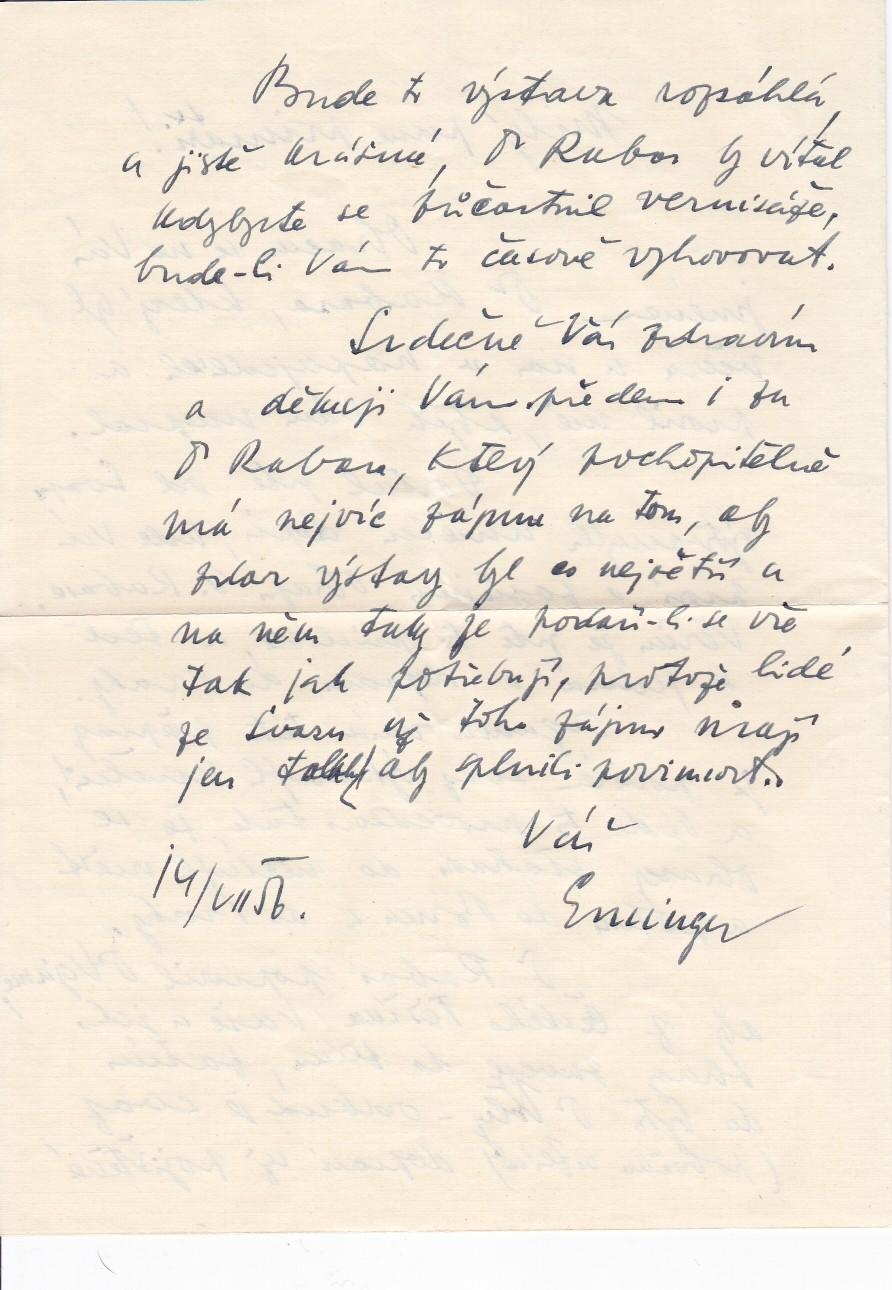 Bude to výstava rozsáhlá,
a jistě krásná, Dr Rabas by vítal
kdybyste se zúčastnil vernisáže,
bude-li Vám to časově vyhovovat.
Srdečně Vás zdravím
a děkuji Vám předem i za
Dr Rabasa, který pochopitelně
má nejvíc zájmu na tom, aby
zdar výstavy byl co největší a
na něm taky je podaří-li se vše
tak jak potřebují, protože lidé
ze Svazu už toho zájmu mají
jen aby splnili povinnost.
Váš
14/VII 56.